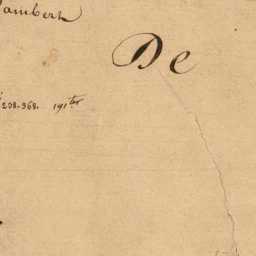 Lambert
De
238-368. 191ter